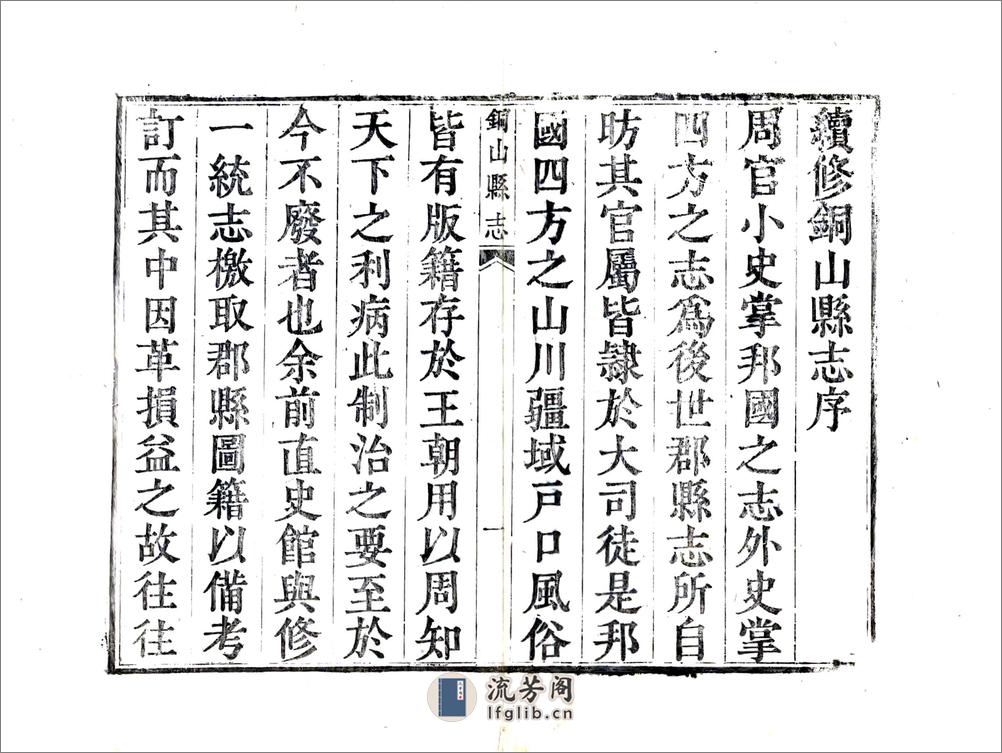 續修銅山縣志序
周官小史掌邦國之志外史掌
四方之志爲後世郡縣志所自
昉其官屬皆隸於大司徒是邦
國四方之山川疆域戸口風俗
銅山縣志
一
皆有版籍存於王朝用以周知
天下之利病此制治之要至於
今不廢者也余前直史館與修
一統志檄取郡縣圖籍以備考
訂而其中因革損益之故往往
流芳阁
lfglib.cn